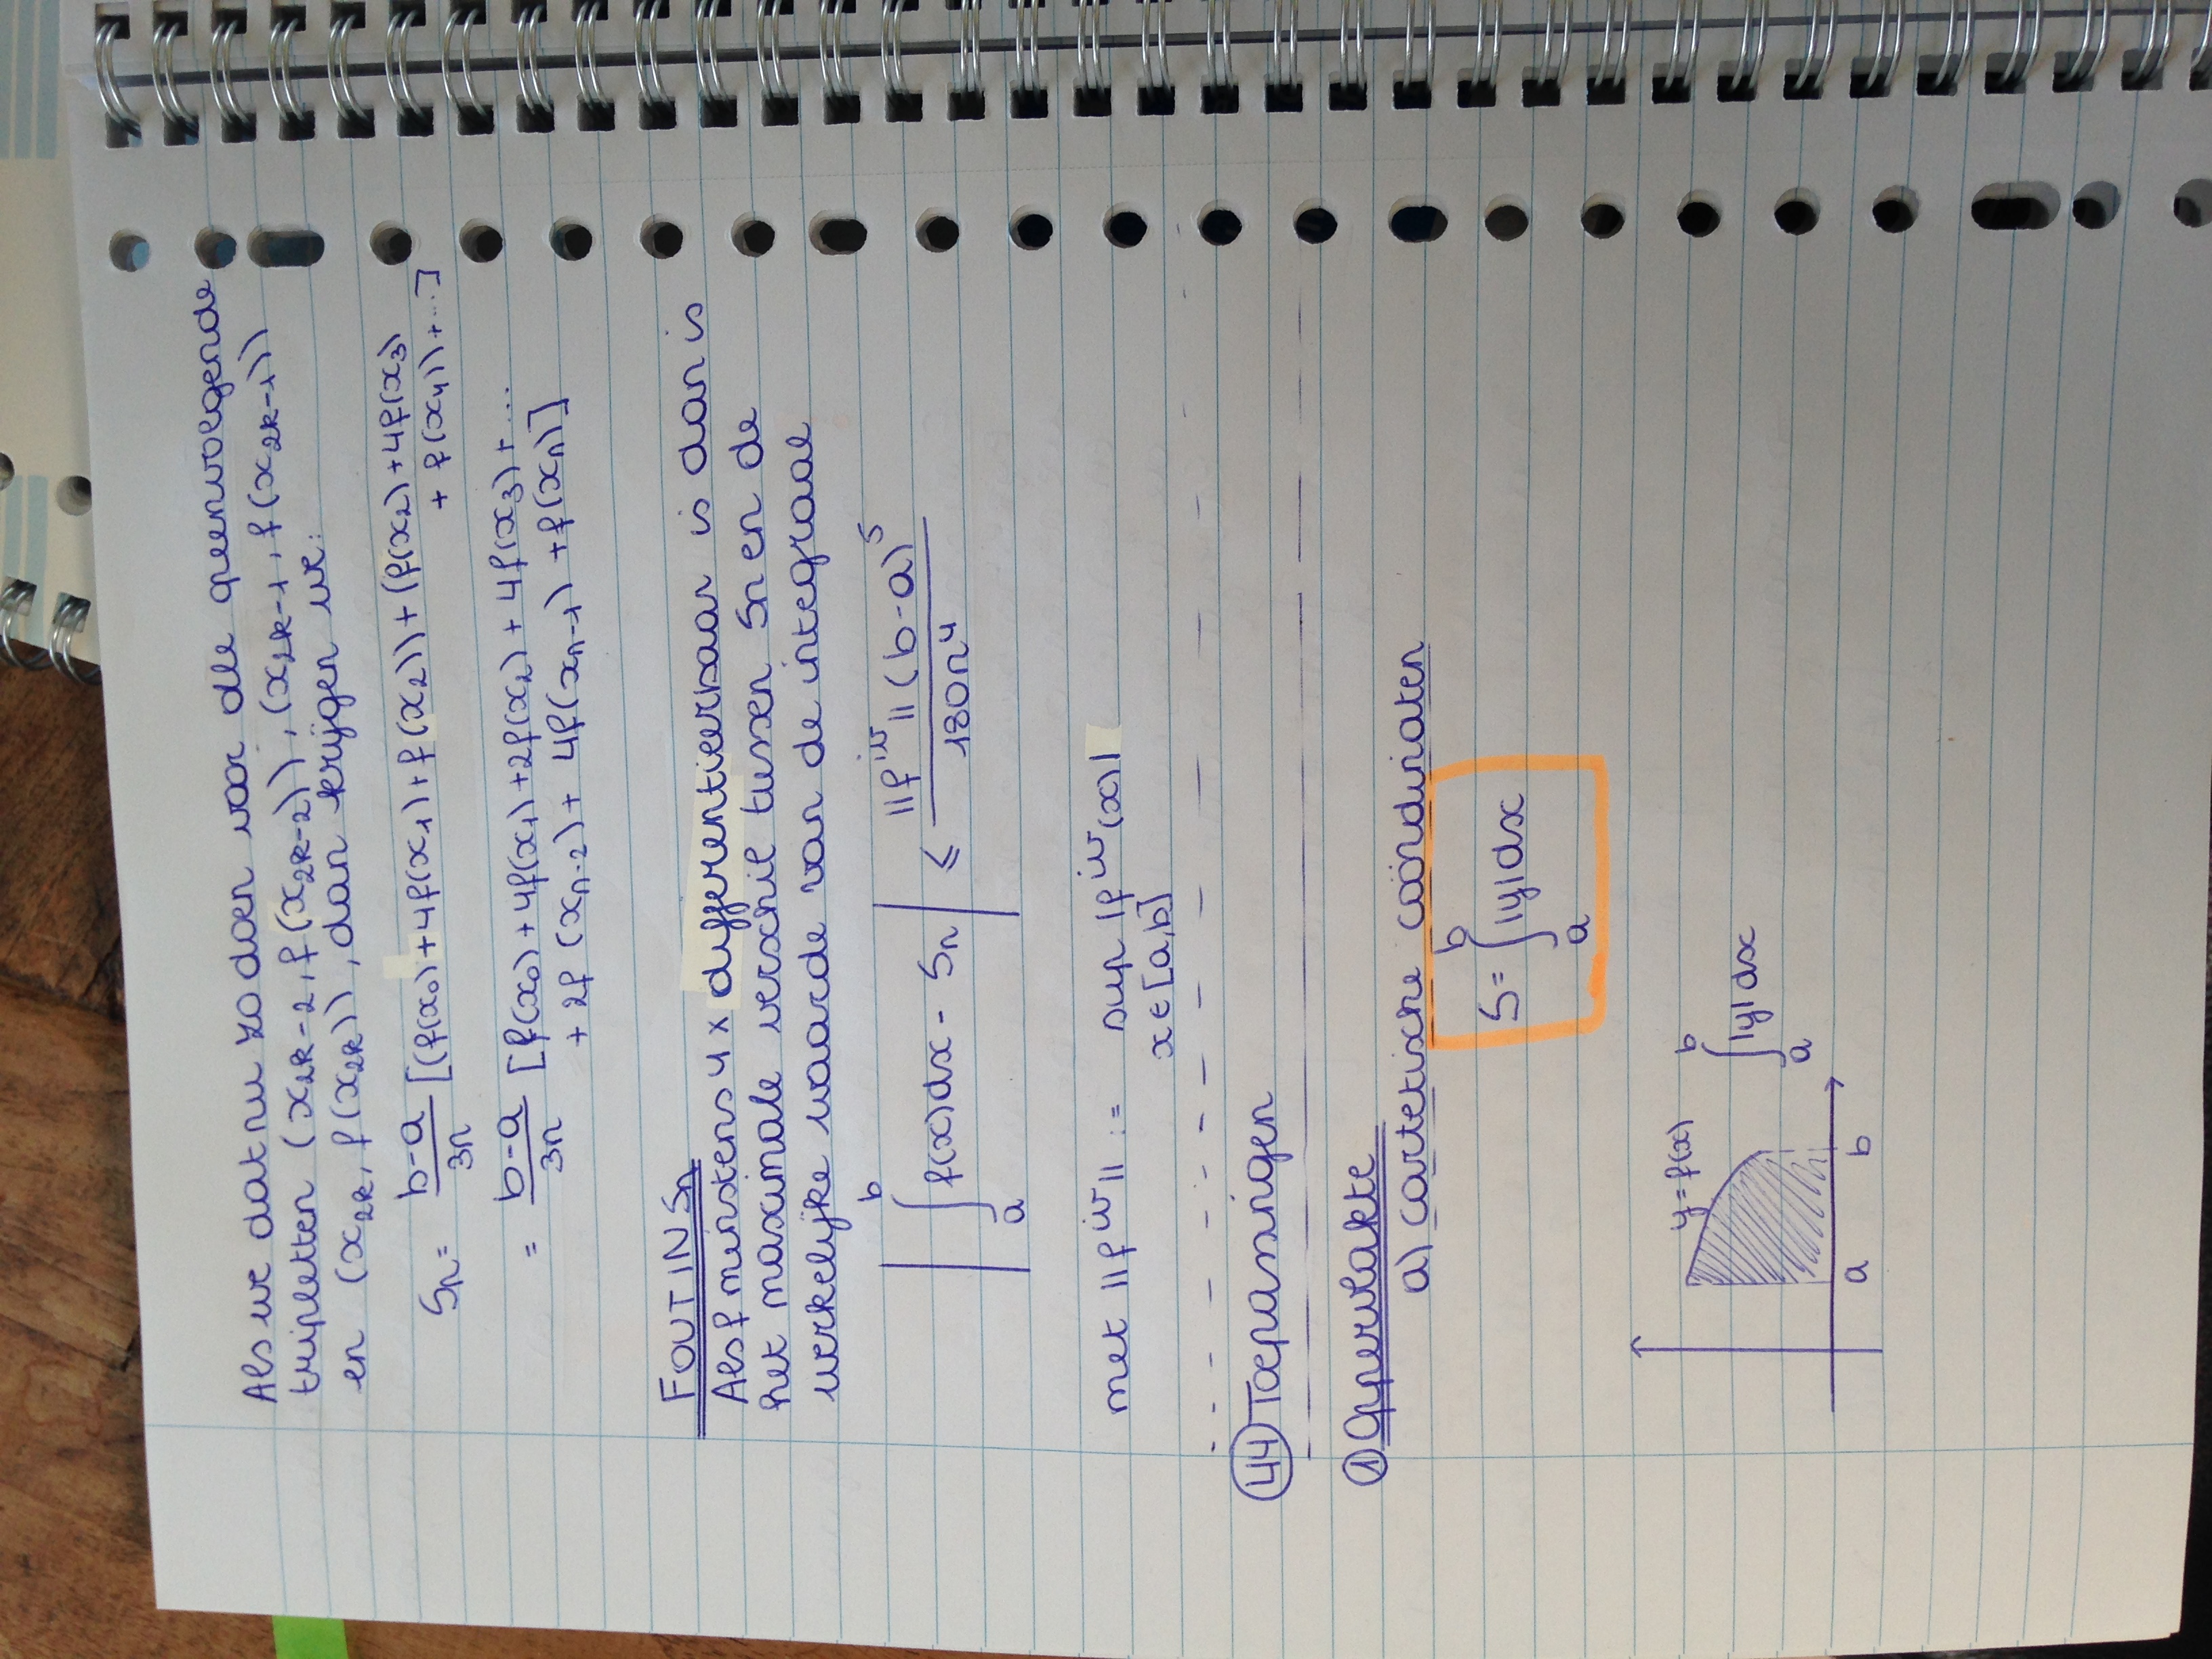 Als we dat nu zo doen voor alle opeenvolgende
tripletten (x₂ₖ₋₂, f(x₂ₖ₋₂)), (x₂ₖ₋₁, f(x₂ₖ₋₁))
en (x₂ₖ, f(x₂ₖ)), dan krijgen we:
Sₙ = (b-a)/3n [(f(x₀)+4f(x₁)+f(x₂))+(f(x₂)+4f(x₃)
+ f(x₄))+...]
= (b-a)/3n [f(x₀)+4f(x₁)+2f(x₂)+4f(x₃)+...
+2f(xₙ₋₂)+4f(xₙ₋₁)+f(xₙ)]
FOUT IN Sₙ
Als f minstens 4x differentieerbaar is dan is
het maximale verschil tussen Sₙ en de
werkelijke waarde van de integraal
|∫ₐᵇ f(x)dx - Sₙ| ≤ ||fⁱᵛ||(b-a)⁵/180n⁴
met ||fⁱᵛ|| := sup |fⁱᵛ(x)|
x∈[a,b]
44 Toepassingen
1 Oppervlakte
a) cartetische coördinaten
S = ∫ₐᵇ |y|dx
y=f(x)
∫ₐᵇ |y|dx
a b